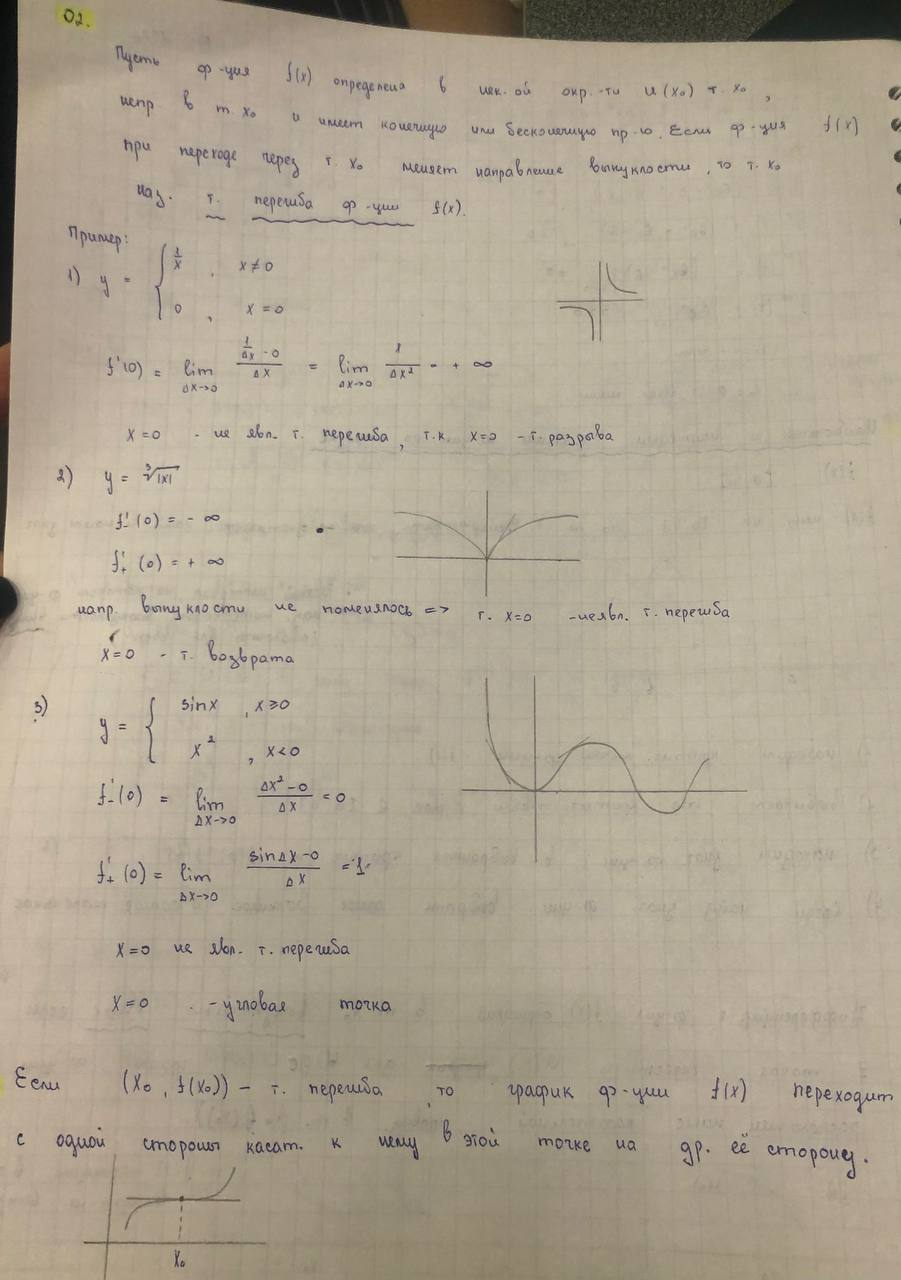 02.
Пусть ф-ция f(x) определена в нек. ой окр.-ти U(x₀) т. x₀,
непр. в т. x₀ и имеет конечную или бесконечную пр-ю. Если ф-ция f(x)
при переходе через т. x₀ меняет направление выпуклости, то т. x₀
наз. т. перегиба ф-ции f(x).
Пример:
1) y = { 1/x, x≠0
0, x=0
f'(0) = lim Δx→0 (1/Δx - 0)/Δx = lim Δx→0 1/Δx² = +∞
x=0 - не явл. т. перегиба, т.к. x=0 - т. разрыва
2) y = ∛|x|
f'₋(0) = -∞
f'₊(0) = +∞
напр. выпуклости не поменялось => т. x=0 - не явл. т. перегиба
x=0 - т. возврата
3) y = { sinx, x≥0
x², x<0
f'₋(0) = lim Δx→0 (Δx²-0)/Δx = 0
f'₊(0) = lim Δx→0 (sinΔx-0)/Δx = 1
x=0 не явл. т. перегиба
x=0 - угловая точка
Если (x₀, f(x₀)) - т. перегиба, то график ф-ции f(x) переходит
с одной стороны касат. к нему в этой точке на др. её сторону.
x₀